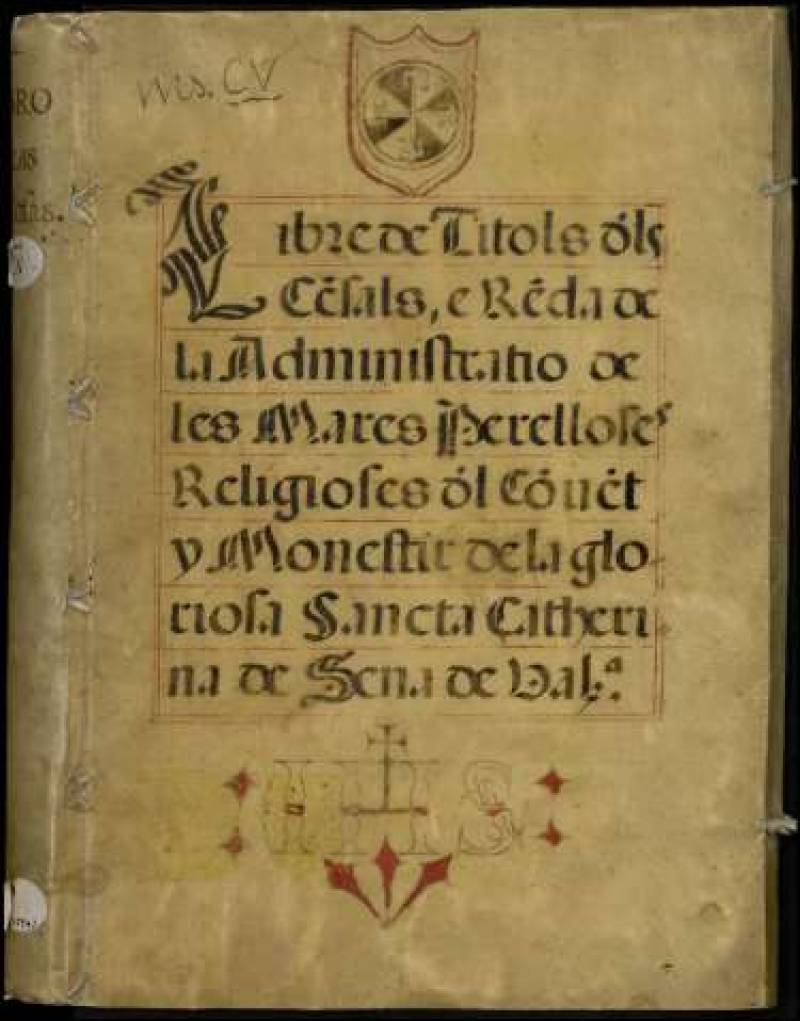 Ms. CV
Libre de Titols dls
Cẽsals, e Rẽda de
la Administratio de
les Mares Perelloses
Religioses dl Cõuẽt
y Monestir de la glo
riosa Sancta Catheri
na de Sena de Val.ª
IHS